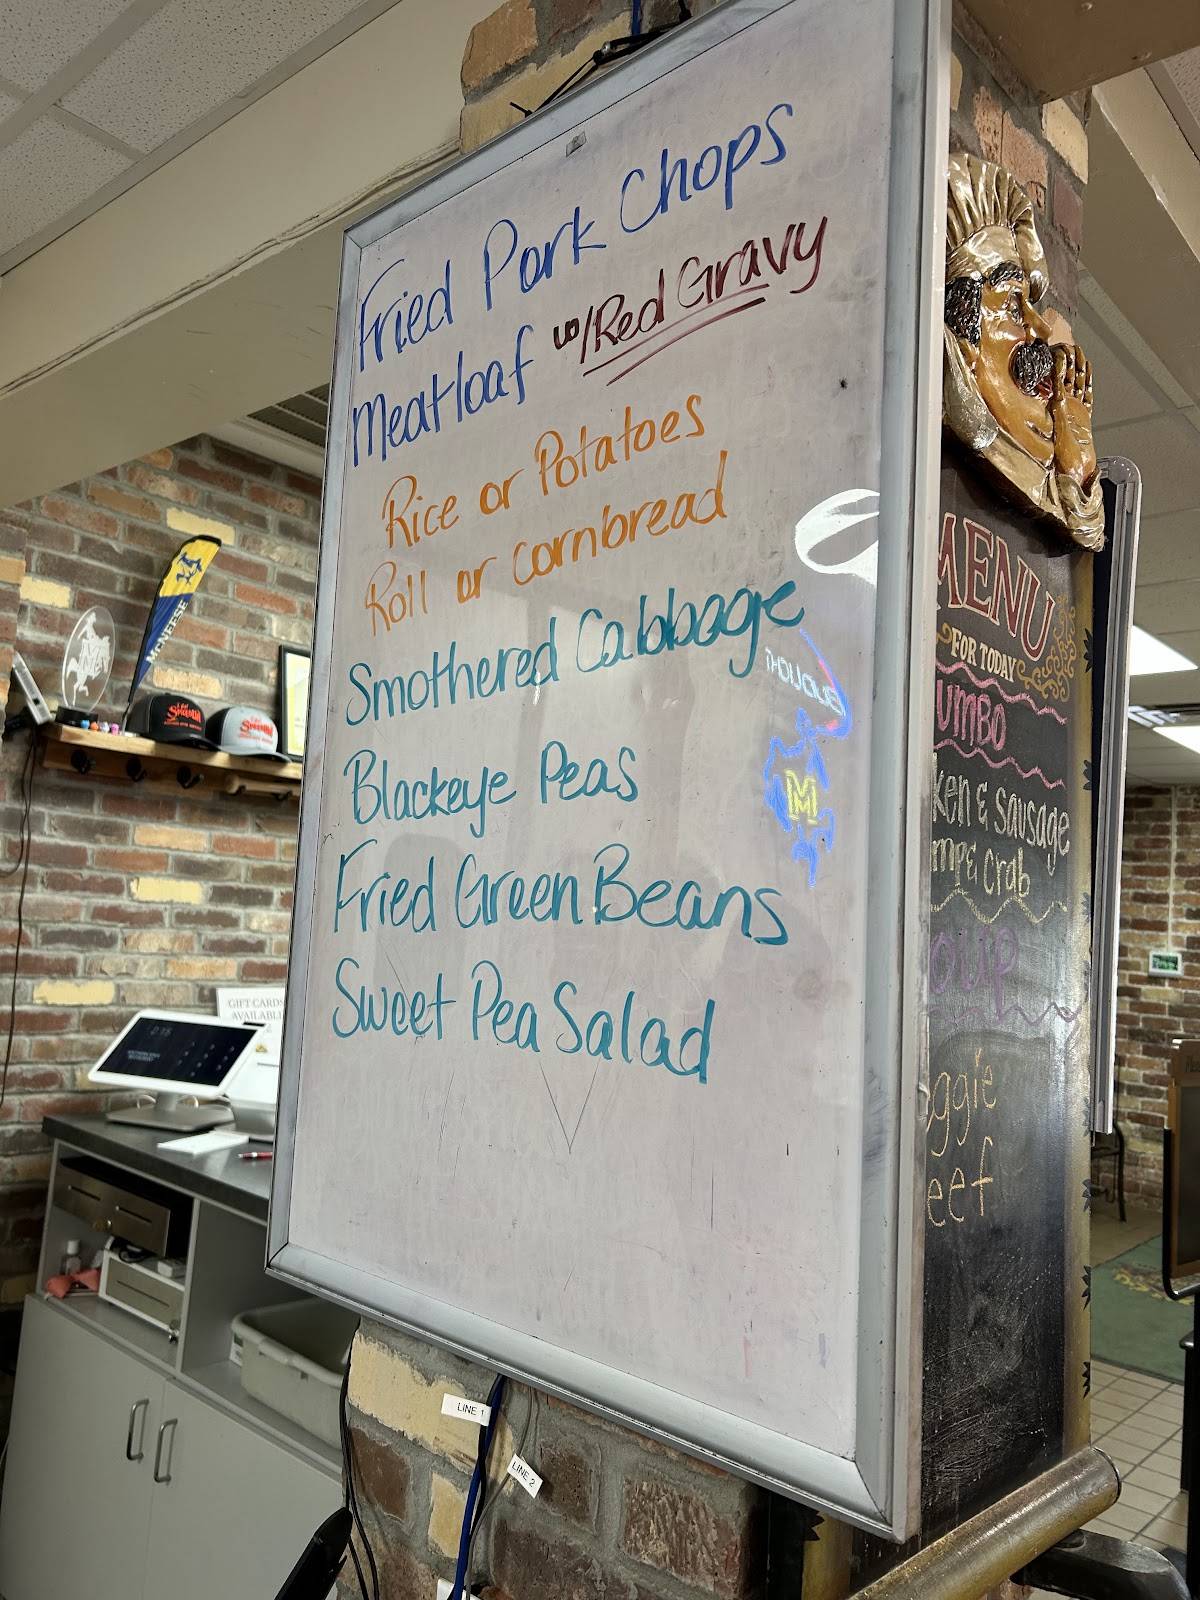 Fried Pork Chops
Meatloaf w/Red Gravy
Rice or Potatoes
Roll or cornbread
Smothered Cabbage
Blackeye Peas
Fried Green Beans
Sweet Pea Salad
MENU
FOR TODAY
& Sausage
Crab
McNEESE
M
GIFT CARDS
LINE 1
LINE 2